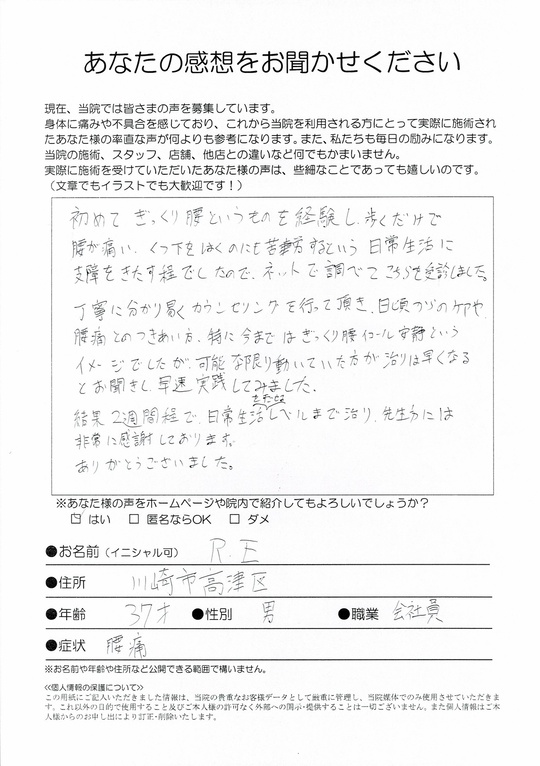 あなたの感想をお聞かせください
現在、当院では皆さまの声を募集しています。
身体に痛みや不具合を感じており、これから当院を利用される方にとって実際に施術され
たあなた様の率直な声が何よりも参考になります。また、私たちも毎日の励みになります。
当院の施術、スタッフ、店舗、他店との違いなど何でもかまいません。
実際に施術を受けていただいたあなた様の声は、些細なことであっても嬉しいのです。
（文章でもイラストでも大歓迎です！）
初めて ぎっくり腰というものを経験し、歩くだけで
腰が痛い、くつ下をはくのにも苦労するという 日常生活に
支障をきたす程でしたので、ネットで調べてこちらを受診しました。
丁寧に分かり易くカウンセリングを行って頂き、日頃からのケアや、
腰痛とのつきあい方、特に今まではぎっくり腰イコール安静という
イメージでしたが、可能な限り動いていた方が治りは早くなる
とお聞きし、早速実践してみました。
結果 2週間程で、日常生活レベルまで治り、先生方には
非常に感謝しております。
ありがとうございました。
※あなた様の声をホームページや院内で紹介してもよろしいでしょうか？
はい □ 匿名ならOK □ ダメ
●お名前（イニシャル可） R.E
●住所 川崎市高津区
●年齢 37才 ●性別 男 ●職業 会社員
●症状 腰痛
※お名前や年齢や住所など公開できる範囲で構いません。
≪個人情報の保護について≫
この用紙にご記入いただきました情報は、当院の貴重なお客様データとして厳重に管理し、当院媒体でのみ使用させていただきま
す。これ以外の目的で使用すること及びご本人様の許可なく外部への開示・提供することは一切ございません。また個人情報はご本
人様からのお申し出により訂正・削除いたします。